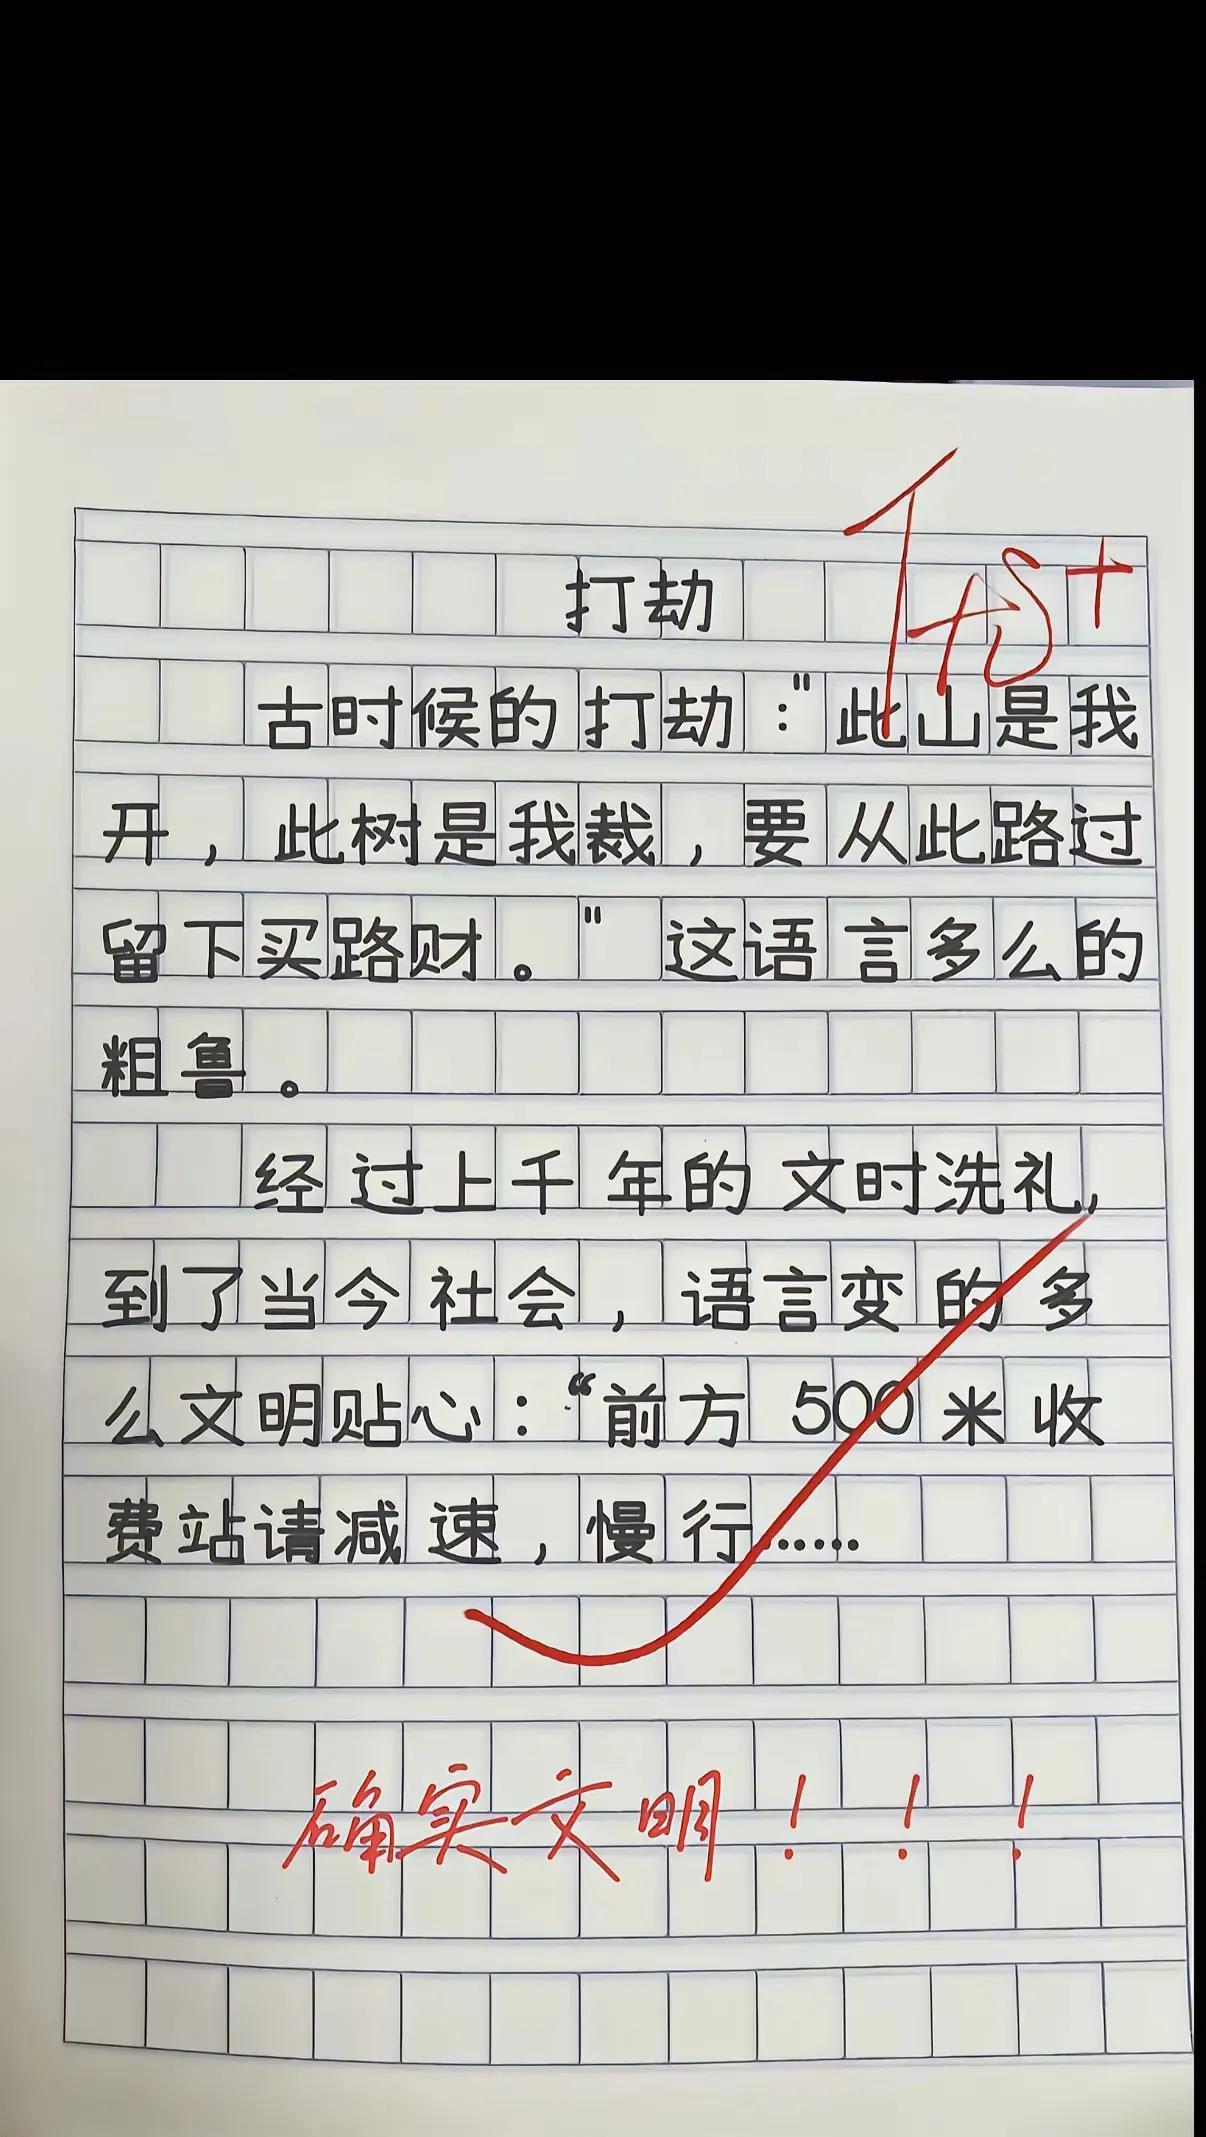 打劫
古时候的打劫："此山是我
开，此树是我裁，要从此路过
留下买路财。"这语言多么的
粗鲁。
经过上千年的文时洗礼，
到了当今社会，语言变的多
么文明贴心：“前方500米收
费站请减速，慢行……
确实文明！！！